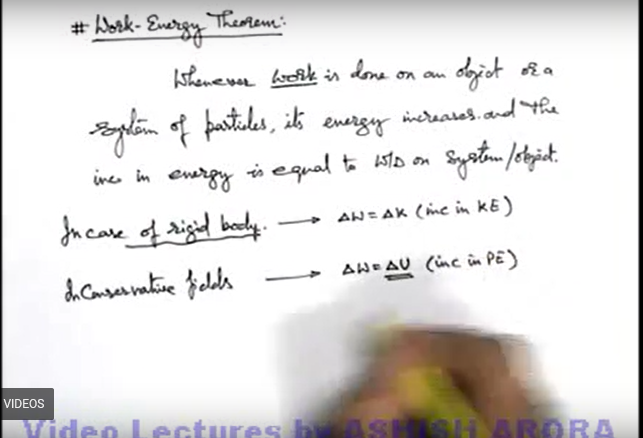 # Work-Energy Theorem:
Whenever work is done on an object or a
system of particles, its energy increases and the
inc in energy is equal to W/D on system/object.
In case of rigid body. → ΔW = ΔK (inc in KE)
In Conservative fields → ΔW = ΔU (inc in PE)
VIDEOS
Video Lectures by ASHISH ARORA